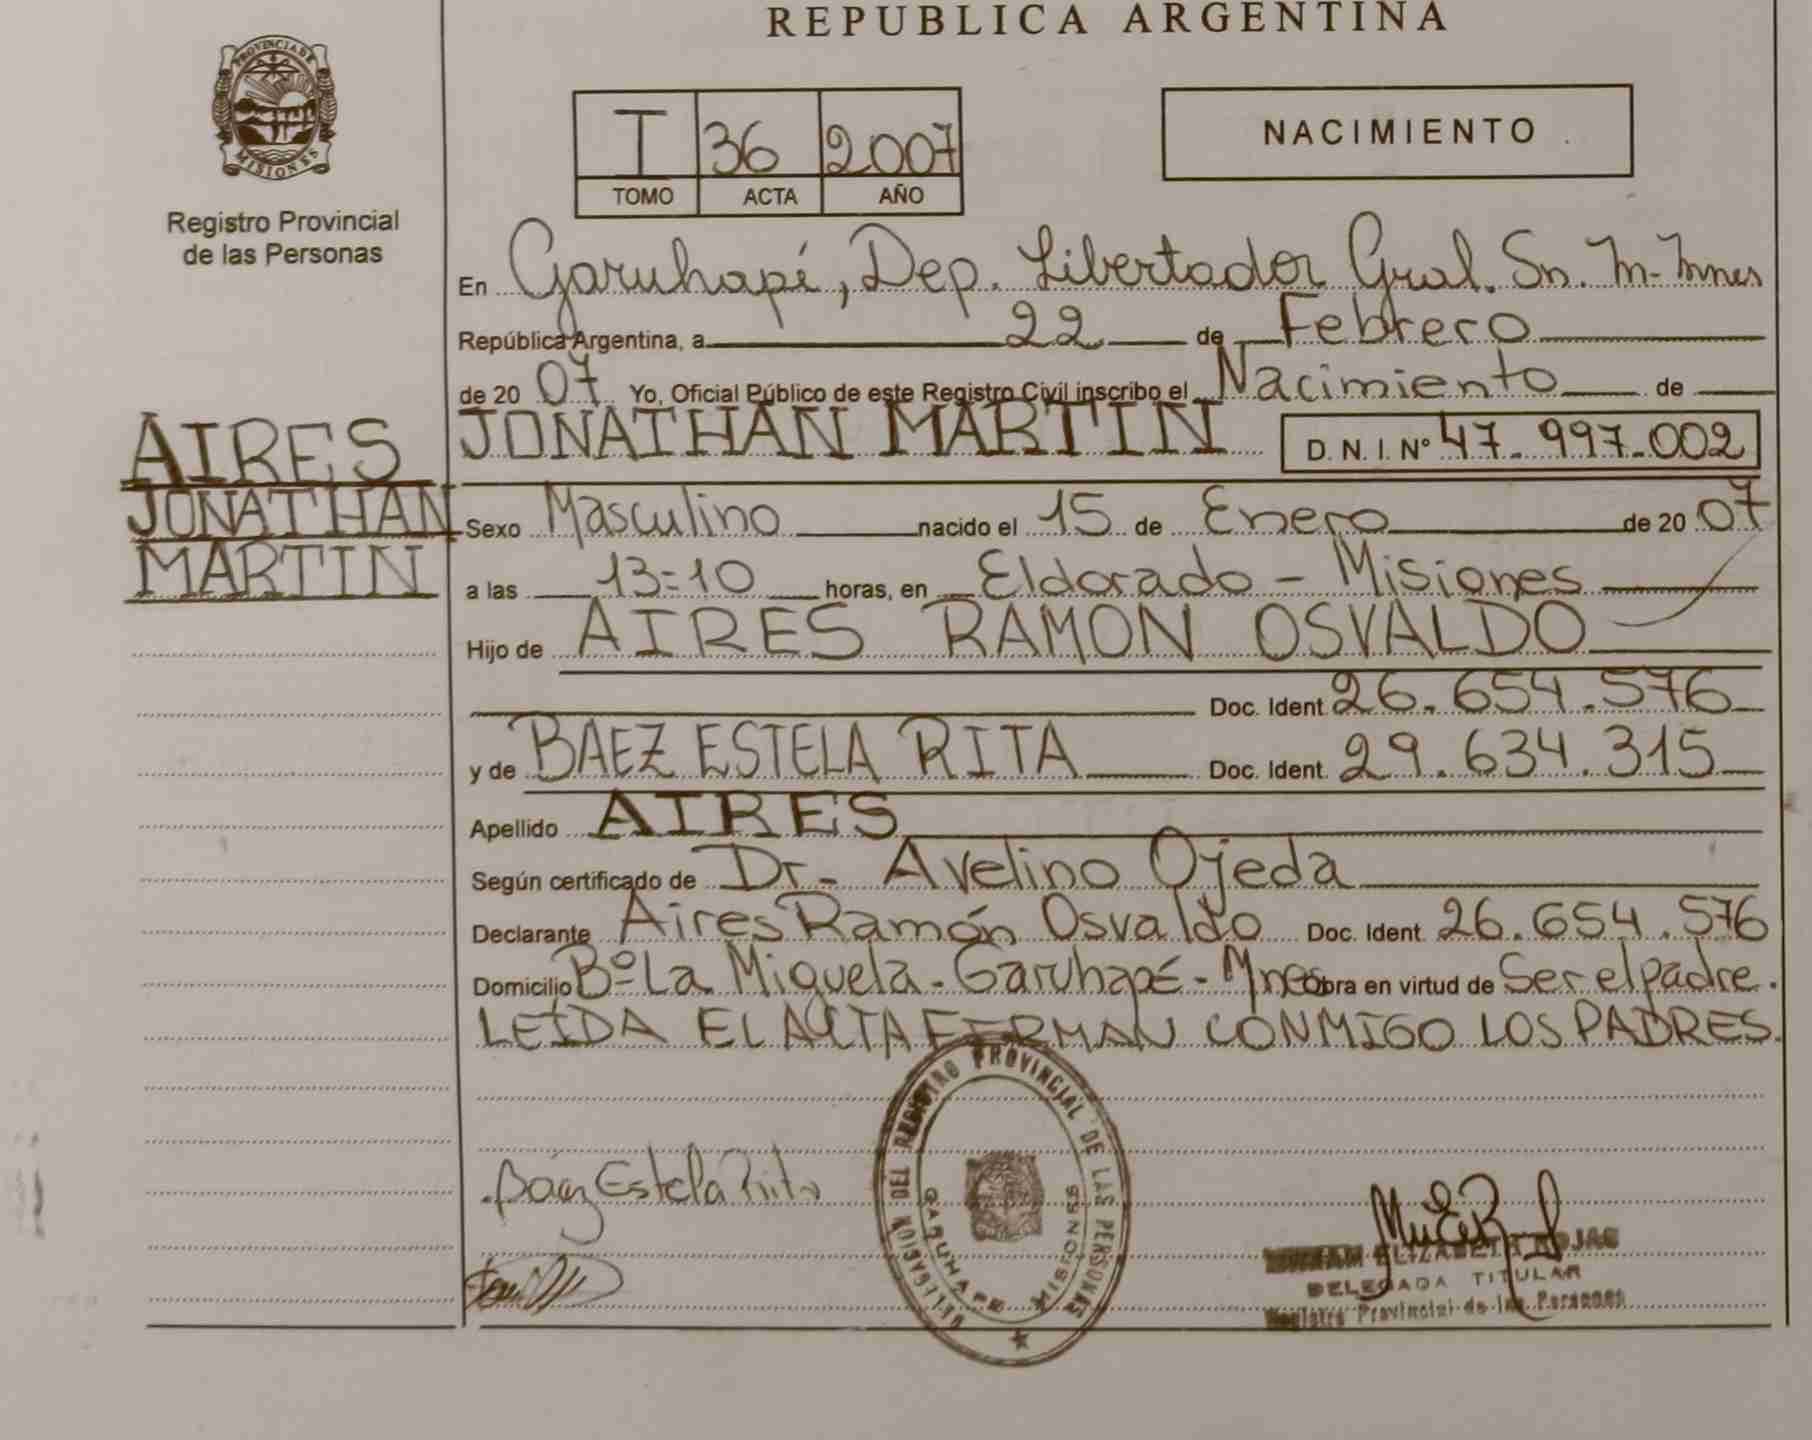 REPUBLICA ARGENTINA
PROVINCIA DE
MISIONES
Registro Provincial
de las Personas
I 36 2007
TOMO ACTA AÑO
NACIMIENTO
En Garuhapé, Dep. Libertador Gral. Sn. M- Mnes
República Argentina, a 22 de Febrero
de 20 07 Yo, Oficial Público de este Registro Civil inscribo el Nacimiento de
AIRES
JONATHAN
MARTIN
JONATHAN MARTIN D. N. I. Nº 47-997-002
Sexo Masculino nacido el 15 de Enero de 20 07
a las 13:10 horas, en Eldorado - Misiones
Hijo de AIRES RAMON OSVALDO
Doc. Ident. 26.654.576
y de BAEZ ESTELA RITA Doc. Ident. 29.634.315
Apellido AIRES
Según certificado de Dr. Avelino Ojeda
Declarante Aires Ramón Osvaldo Doc. Ident. 26.654.576
Domicilio Bº La Miguela - Garuhapé - Mnes obra en virtud de Ser el padre.
LEIDA EL ACTA FIRMAN CONMIGO LOS PADRES.
DELEGACION DEL REGISTRO PROVINCIAL DE LAS PERSONAS
GARUHAPE MISIONES
Báez Estela Rita
ELIZABETH ROJAS
DELEGADA TITULAR
Registro Provincial de las Personas